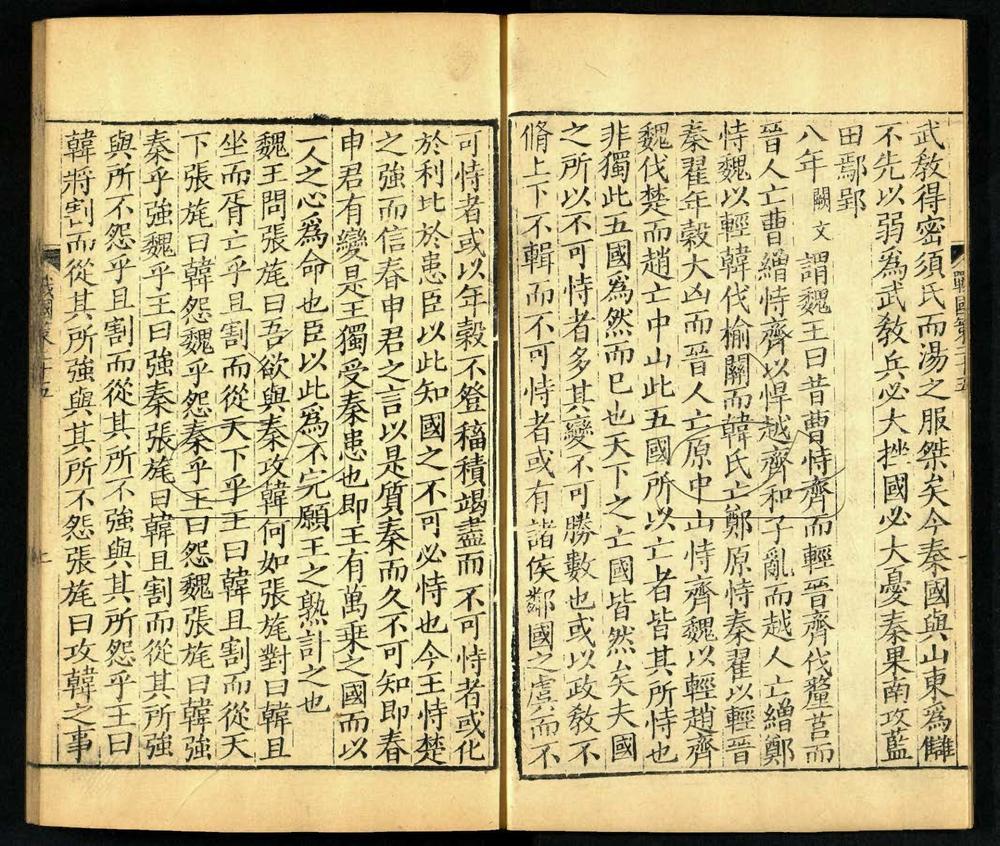 武教得密須氏而湯之服桀矣今秦國與山東為讎
不先以弱為武教兵必大挫國必大憂秦果南攻藍
田鄢郢
八年 闕文 謂魏王曰昔曹恃齊而輕晉齊伐釐莒而
晉人亡曹繒恃齊以悍越齊和子亂而越人亡繒鄭
恃魏以輕韓伐榆關而韓氏亡鄭原恃秦翟以輕晉
秦翟年穀大凶而晉人亡原中山恃齊魏以輕趙齊
魏伐楚而趙亡中山此五國所以亡者皆其所恃也
非獨此五國為然而已也天下之亡國皆然矣夫國
之所以不可恃者多其變不可勝數也或以政教不
脩上下不輯而不可恃者或有諸侯鄰國之虞而不
可恃者或以年穀不登稸積竭盡而不可恃者或化
於利比於患臣以此知國之不可必恃也今王恃楚
之強而信春申君之言以是質秦而久不可知即春
申君有變是王獨受秦患也即王有萬乘之國而以
一人之心為命也臣以此為不完願王之熟計之也
魏王問張旄曰吾欲與秦攻韓何如張旄對曰韓且
坐而胥亡乎且割而從天下乎王曰韓且割而從天
下張旄曰韓怨魏乎怨秦乎王曰怨魏張旄曰韓強
秦乎強魏乎王曰強秦張旄曰韓且割而從其所強
與所不怨乎且割而從其所不強與其所怨乎王曰
韓將割而從其所強與其所不怨張旄曰攻韓之事